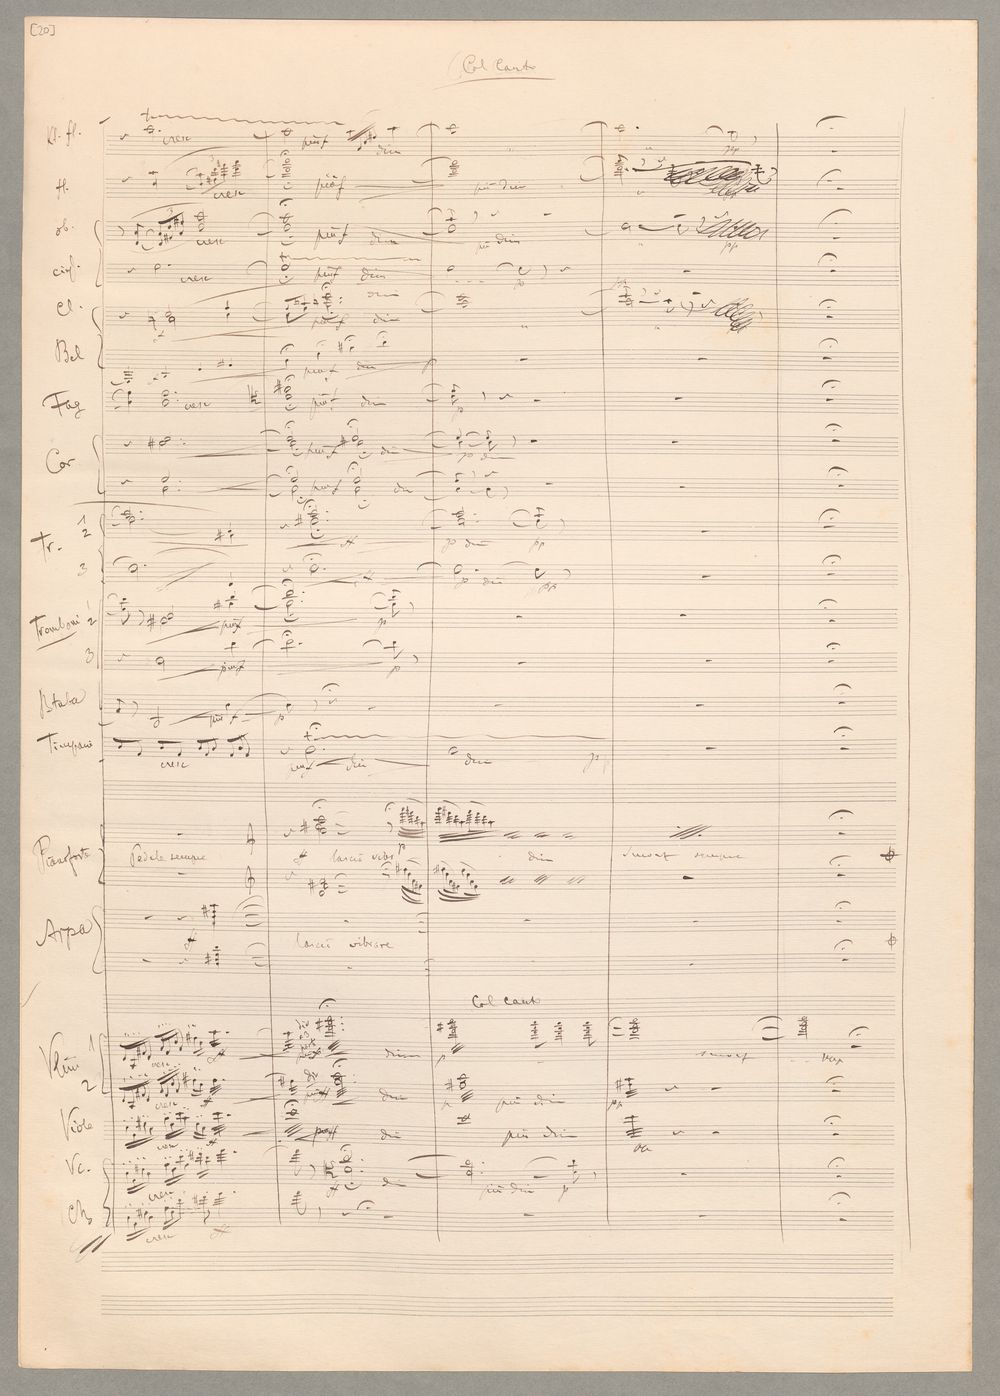 [20]
Col Canto
Kl. fl.
cresc
più f
dim
pp
fl.
cresc
più f
più dim
ob.
cresc
più f
dim
più dim
pp
cingl.
cresc
più f
dim
p
Cl.
dim
più f
dim
Bcl
più f
dim
Fag
cresc
più f
dim
p
Cor
più f
dim
p dim
più f
dim
Tr. 1 2
ff
p dim
pp
3
ff
p dim
pp
Tromboni 1 2
più f
p
3
più f
p
Btuba
più f
p
Timpani
cresc
dim
dim
pp
Pianoforte
Pedale sempre
ff
lascia vibr
p
dim
smorz sempre
Arpa
ff
lascia vibrare
Col Canto
Vlini 1
cresc
ff
div
dim
p
smorz
2
cresc
ff
più f
dim
p
più dim
pp
Viole
cresc
ff
dim
più dim
Vc.
cresc
ff
dim
più dim
p
Cb
cresc
ff